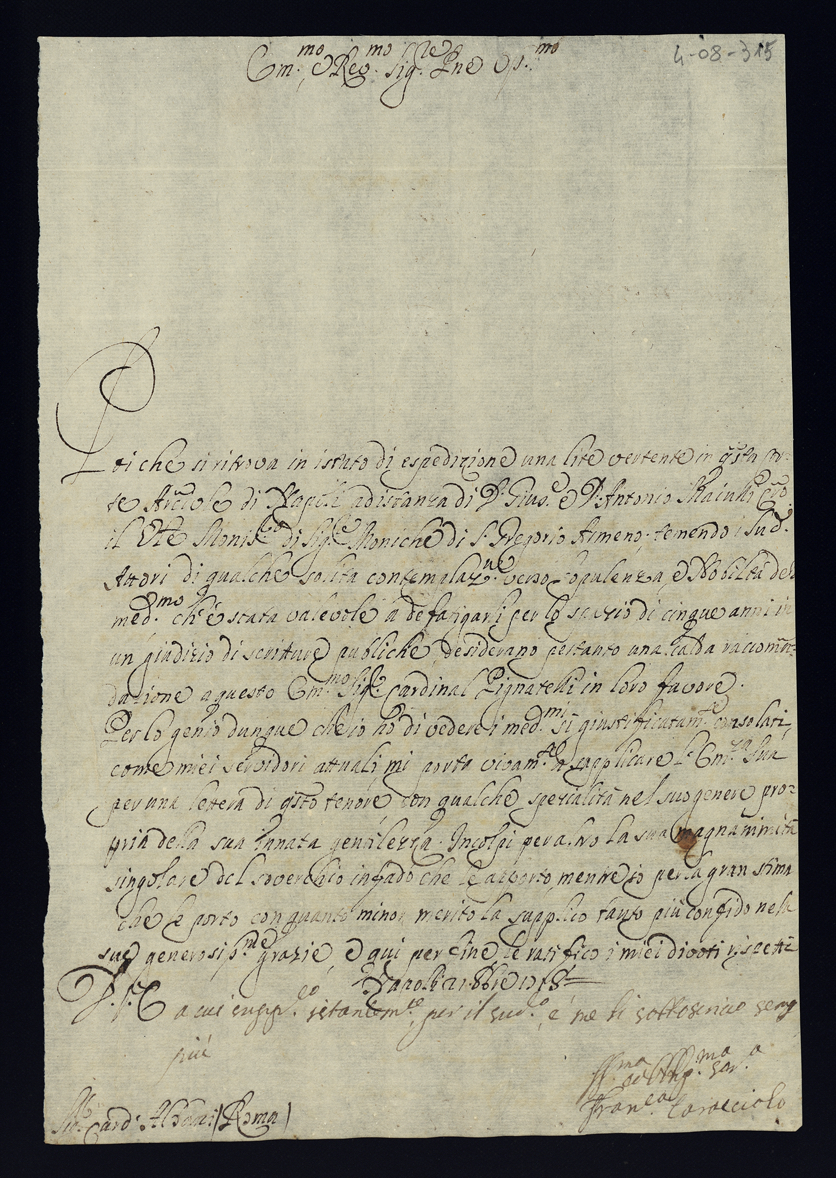 Em.mo e Reu.mo Sig.re Pne Os.mo
4-08-315
Poi che si ritrova in istato di espedizione una lite vertente in qsta Cor=
te Arciv.le di Napoli ad istanza di D. Gius.e e D. Antonio Maiulli
il Monis. di Sig.e Moniche di S. Gregorio Armeno; temendo i sud.i
Attori di qualche solita contemplaz.ne verso l'opulenza, e Nobiltà del
med.mo ch'è stata valevole a defatigarli per lo spazio di cinque anni in
un giudizio di scritture publiche, desiderano pertanto una calda raccoman=
dazione a questo Em.mo Sig.e Cardinal Pignatelli in loro favore.
Per lo genio dunque che io hò di vedere i med.mi sì giustificatam.e consolati,
come miei servidori attuali, mi porta vivam.te a supplicare l'Em.za Sua
per una lettera di qsto tenore con qualche spezialità nel suo genere pro=
pria della sua innata gentilezza. Incolpi peraltro la sua magnanimità
singolare del soverchio infado che le apporto, mentre io per la gran stima
che le porto con quanto minor merito la supplico tanto più confido nelle
sue generosis.me grazie, e qui per fine le ratifico i miei divoti rispetti
Napoli 21 8bre 1718
V. E. a cui supp.co istantem.te per il sud.o, e me li sottoscrivo semp
più
Aff.ma ed Obblig.ma Ser.a
Fran.ca Caracciolo
Sig. Card. Albani (Roma)